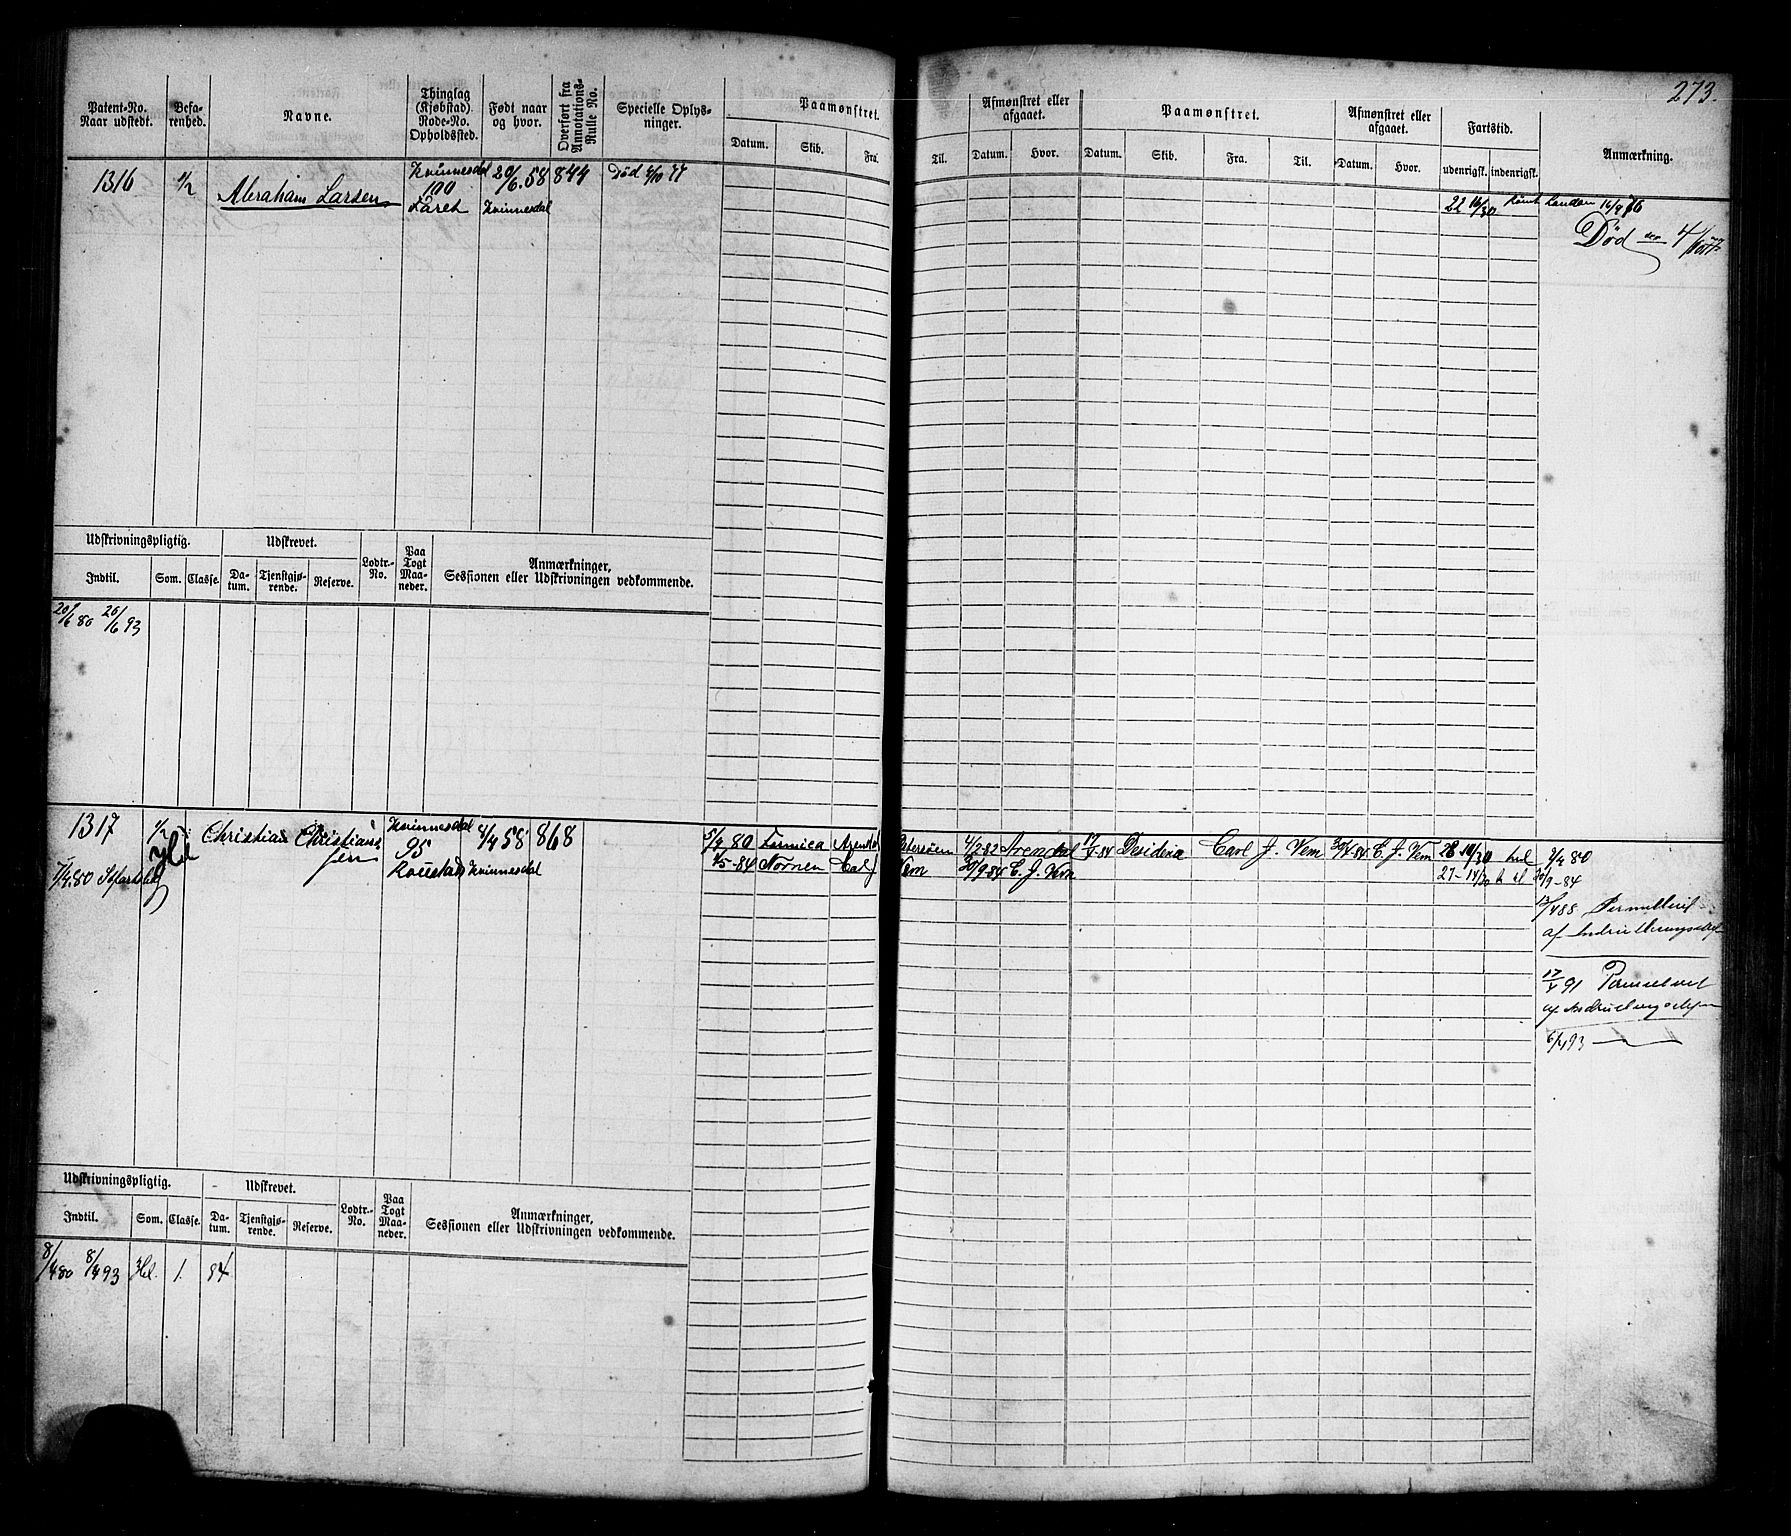 273.
Patent-No. Naar udstedt.
Befarenhed.
Navne.
Thinglag (Kjøbstad). Rode-No. Opholdssted.
Født naar og hvor.
Overført fra Annotations-Rulle No.
Specielle Oplysninger.
Paamønstret.
Datum. Skib. Fra. Til.
Afmønstret eller afgaaet.
Datum. Hvor.
Paamønstret.
Datum. Skib. Fra. Til.
Afmønstret eller afgaaet.
Datum. Hvor.
Fartstid.
udenrigsk. indenrigsk.
Anmærkning.
1316 1/2 Abraham Larsen Kvinnesdal 20/6.58 844 Død 4/10 77
100
Faret Kvinnesdal
22 16/30 London 16/9 76
Død 4/10 77
Udskrivningspligtig. Udskrevet. Lodtr.-No. Paa Togt Maaneder. Anmærkninger, Sessionen eller Udskrivningen vedkommende.
Indtil. Som. Classe. Datum. Tjenstgjørende. Reserve.
20/6 80 20/6 93
1317 1/2 Christian Christiansen Kvinnesdal 8/4 58 868
95
Kvinnesdal
7/4.80
5/4 80 Arendal 4/2-82 Arendal 12/5-84 Desideria Carl J. Vem 30/4-84 C. J. Vem 28 10/30 2/4 80
2/5-84 Nornen Carl J Vem 30/9-84 C. J. Vem 27-14/30 20/9-84
12/4 88 Permitteret
af
17/4 91
6/4 93
Udskrivningspligtig. Udskrevet. Lodtr.-No. Paa Togt Maaneder. Anmærkninger, Sessionen eller Udskrivningen vedkommende.
Indtil. Som. Classe. Datum. Tjenstgjørende. Reserve.
8/4 80 8/4 93 Hel. 1. 84